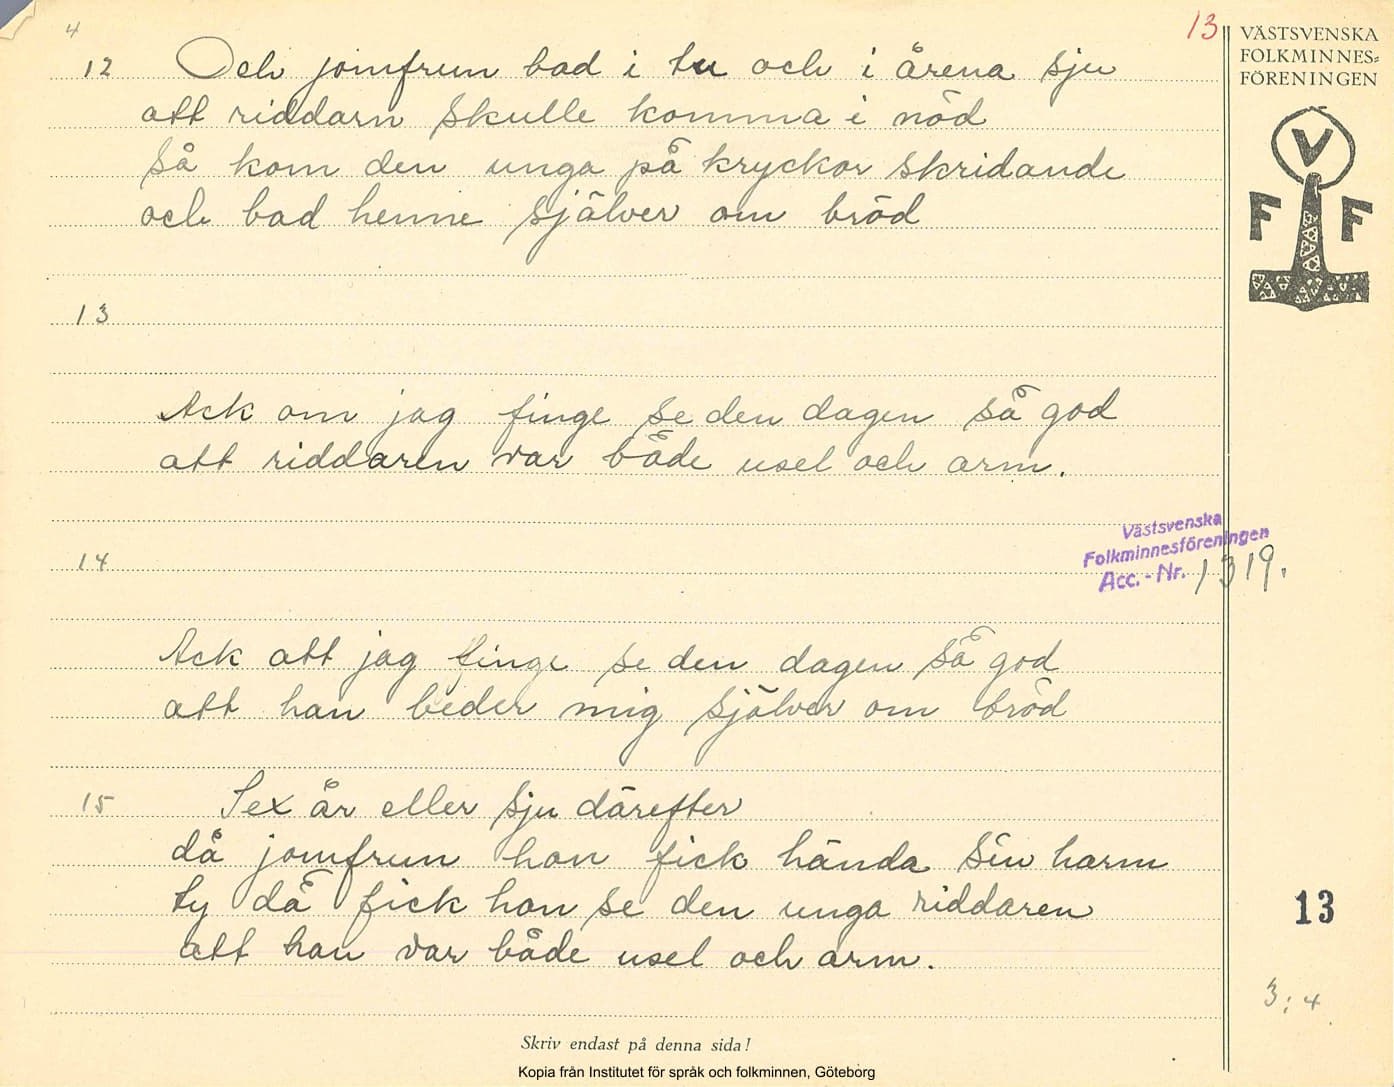 4
13
VÄSTSVENSKA
FOLKMINNES=
FÖRENINGEN
V
F F
12 Och jomfrun bad i tu och i årena sju
att riddarn skulle komma i nöd
så kom den unga på kryckor skridande
och bad henne själver om bröd
13
Ack om jag finge se den dagen så god
att riddaren var både usel och arm.
Västsvenska
Folkminnesföreningen
Acc. - Nr. 1319.
14
Ack att jag finge se den dagen så god
att han beder mig själver om bröd
15 Sex år eller sju därefter
då jomfrun hon fick hända sin harm
ty då fick hon se den unga riddaren
att han var både usel och arm.
13
3:4
Skriv endast på denna sida!
Kopia från Institutet för språk och folkminnen, Göteborg